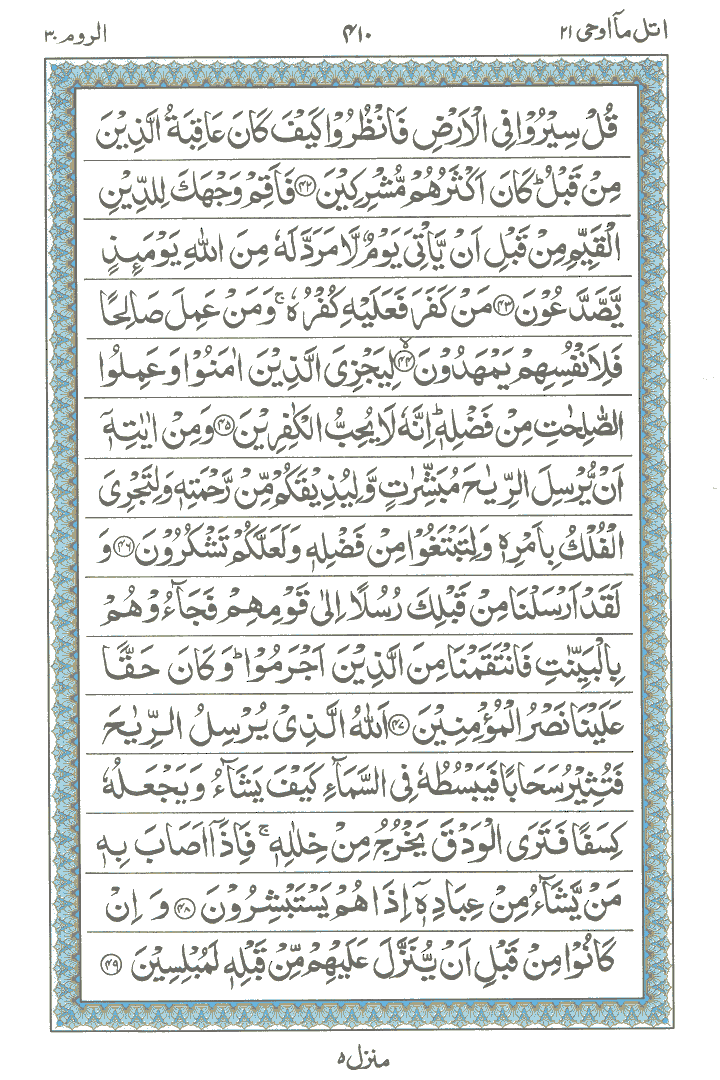 اتل مآ اوحی ۲۱ ۴۱۰ الروم ۳۰
قُلْ سِيْرُوْا فِى الْاَرْضِ فَانْظُرُوْا كَيْفَ كَانَ عَاقِبَةُ الَّذِيْنَ
مِنْ قَبْلُ ؕ كَانَ اَكْثَرُهُمْ مُّشْرِكِيْنَ ﴿۴۲﴾ فَاَقِمْ وَجْهَكَ لِلدِّيْنِ
الْقَيِّمِ مِنْ قَبْلِ اَنْ يَّاْتِىَ يَوْمٌ لَّا مَرَدَّ لَهٗ مِنَ اللّٰهِ يَوْمَٮِٕذٍ
يَّصَّدَّعُوْنَ ﴿۴۳﴾ مَنْ كَفَرَ فَعَلَيْهِ كُفْرُهٗ ۚ وَمَنْ عَمِلَ صَالِحًا
فَلِاَنْفُسِهِمْ يَمْهَدُوْنَ ﴿۴۴﴾ لِيَجْزِىَ الَّذِيْنَ اٰمَنُوْا وَعَمِلُوا
الصّٰلِحٰتِ مِنْ فَضْلِهٖ ؕ اِنَّهٗ لَا يُحِبُّ الْكٰفِرِيْنَ ﴿۴۵﴾ وَمِنْ اٰيٰتِهٖۤ
اَنْ يُّرْسِلَ الرِّيٰحَ مُبَشِّرٰتٍ وَّلِيُذِيْقَكُمْ مِّنْ رَّحْمَتِهٖ وَلِتَجْرِىَ
الْفُلْكُ بِاَمْرِهٖ وَلِتَبْتَغُوْا مِنْ فَضْلِهٖ وَلَعَلَّكُمْ تَشْكُرُوْنَ ﴿۴۶﴾ وَ
لَقَدْ اَرْسَلْنَا مِنْ قَبْلِكَ رُسُلًا اِلٰى قَوْمِهِمْ فَجَآءُوْهُمْ
بِالْبَيِّنٰتِ فَانْتَقَمْنَا مِنَ الَّذِيْنَ اَجْرَمُوْا ؕ وَكَانَ حَقًّا
عَلَيْنَا نَصْرُ الْمُؤْمِنِيْنَ ﴿۴۷﴾ اَللّٰهُ الَّذِىْ يُرْسِلُ الرِّيٰحَ
فَتُثِيْرُ سَحَابًا فَيَبْسُطُهٗ فِى السَّمَآءِ كَيْفَ يَشَآءُ وَيَجْعَلُهٗ
كِسَفًا فَتَرَى الْوَدْقَ يَخْرُجُ مِنْ خِلٰلِهٖ ۚ فَاِذَاۤ اَصَابَ بِهٖ
مَنْ يَّشَآءُ مِنْ عِبَادِهٖۤ اِذَا هُمْ يَسْتَبْشِرُوْنَ ﴿۴۸﴾ وَاِنْ
كَانُوْا مِنْ قَبْلِ اَنْ يُّنَزَّلَ عَلَيْهِمْ مِّنْ قَبْلِهٖ لَمُبْلِسِيْنَ ﴿۴۹﴾
منزل ۵